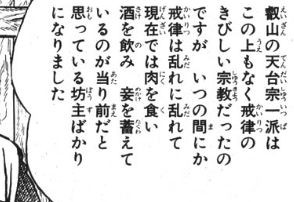 叡山の天台宗一派は
この上もなく戒律の
きびしい宗教だったの
ですが いつの間にか
戒律は乱れに乱れて
現在では肉を食い
酒を飲み 妾を蓄えて
いるのが当り前だと
思っている坊主ばかり
になりました